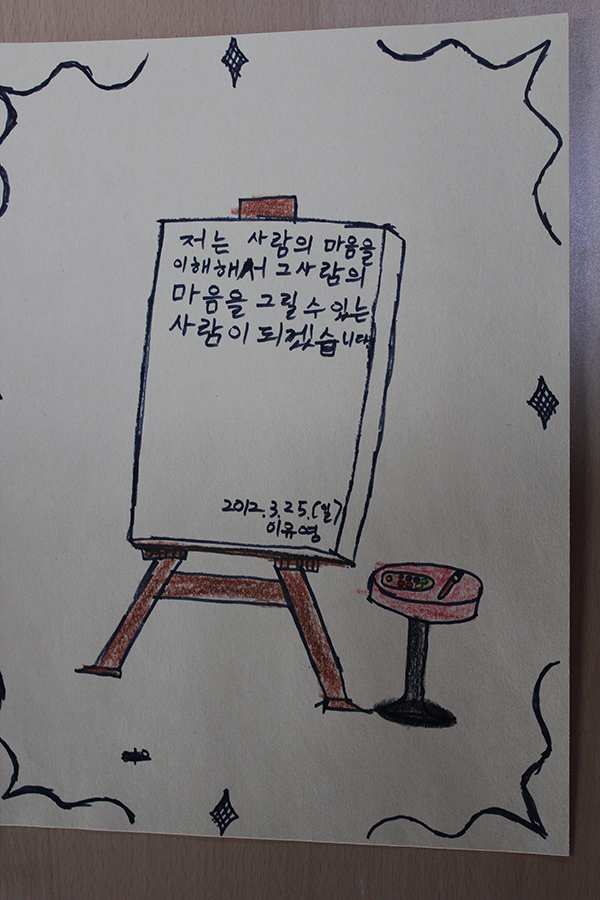 저는 사람의 마음을
이해해서 그사람의
마음을 그릴 수 있는
사람이 되겠습니다
2012.3.25.(일)
이유영